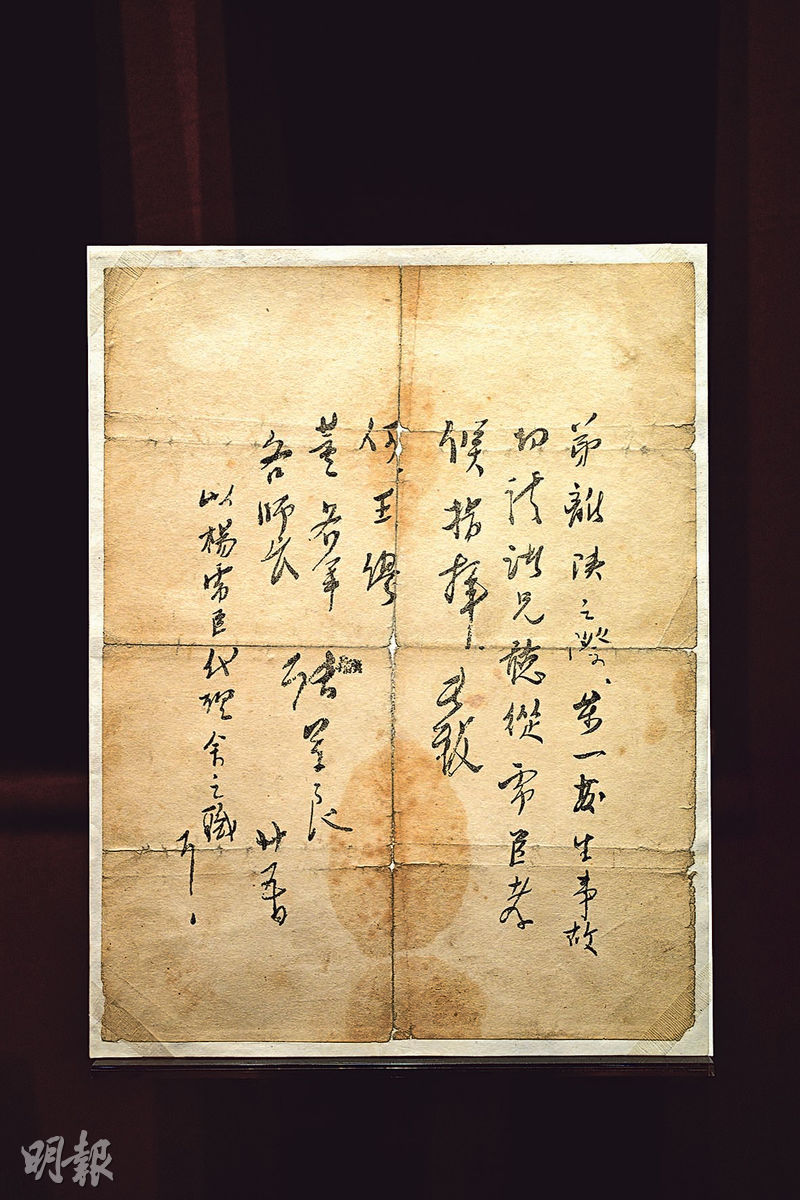 弟離陝之際、萬一發生事故
切請諸兄聽從虎臣孝
侯指揮、此致
何、王繆
董各軍
各師長
張學良
廿五日
以楊虎臣代理余之職
明報